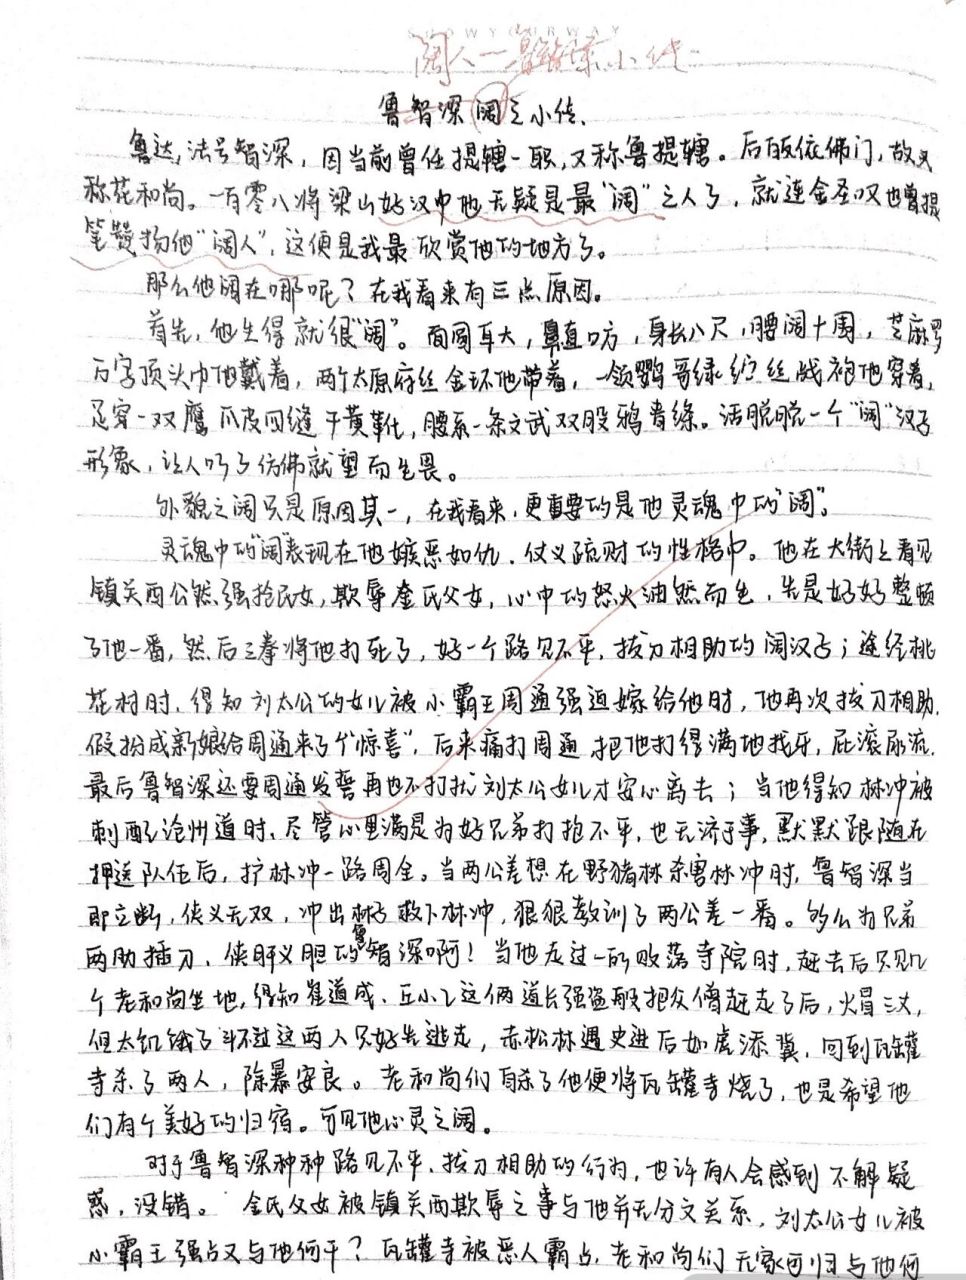 SNOWY AIRWAY
阔人—鲁智深小传
鲁智深阔之小传.
鲁达,法号智深,因当前曾任提辖一职,又称鲁提辖。后皈依佛门,故又
称花和尚。一百零八将梁山好汉中他无疑是最“阔”之人了,就连金圣叹也曾提
笔赞扬他“阔人”,这便是我最欣赏他的地方了。
那么他阔在哪呢?在我看来有三点原因。
首先,他生得就很“阔”。面圆耳大,鼻直口方,身长八尺,腰阔十围,芝麻罗
万字顶头巾他戴着,两个太原府丝金环他带着,一领鹦哥绿纻丝战袍他穿着,
足穿一双鹰爪皮四缝干黄靴,腰系一条文武双股鸦青绦。活脱脱一个“阔”汉子
形象,让人听了仿佛就望而生畏。
外貌之阔只是原因其一,在我看来,更重要的是他灵魂中的“阔”。
灵魂中的“阔”表现在他嫉恶如仇、仗义疏财的性格中。他在大街上看见
镇关西公然强抢民女,欺辱金氏父女,心中的怒火油然而生,先是好好整顿
了他一番,然后三拳将他打死了,好一个路见不平,拔刀相助的阔汉子;途经桃
花村时,得知刘太公的女儿被小霸王周通强迫嫁给他时,他再次拔刀相助,
假扮成新娘给周通来了个“惊喜”,后来痛打周通,把他打得满地找牙,屁滚尿流,
最后鲁智深还要周通发誓再也不打扰刘太公女儿才安心离去;当他得知林冲被
刺配沧州道时,尽管心里满是为好兄弟打抱不平,也无济于事,默默跟随在
押送队伍后,护林冲一路周全。当两公差想在野猪林杀害林冲时,鲁智深当
即立断,侠义无双,冲出林子救下林冲,狠狠教训了两公差一番。多么为兄弟
两肋插刀、侠肝义胆的鲁智深啊!当他走过一所败落寺院时,赶去后只见几
个老和尚坐地,得知崔道成、丘小乙这俩道长强盗般把众僧赶走了后,火冒三丈,
但太饥饿了斗不过这两人只好先逃走,赤松林遇史进后如虎添翼,回到瓦罐
寺杀了两人,除暴安良。老和尚们自杀了他便将瓦罐寺烧了,也是希望他
们有个美好的归宿。可见他心灵之阔。
对于鲁智深种种路见不平、拔刀相助的行为,也许有人会感到不解疑
惑,没错。金氏父女被镇关西欺辱之事与他并无分文关系,刘太公女儿被
小霸王强占又与他何干?瓦罐寺被恶人霸占,老和尚们无家可归与他何